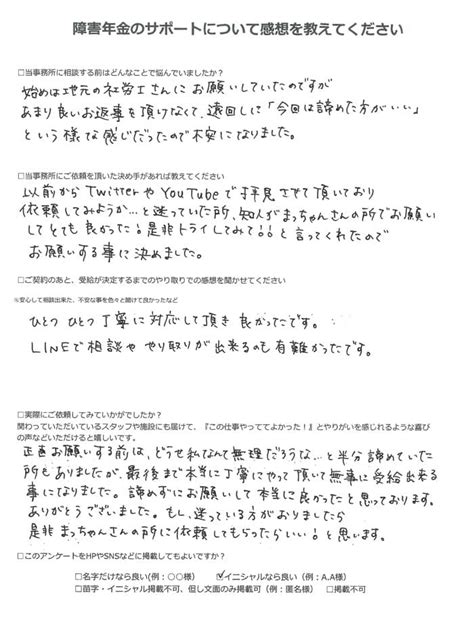 障害年金のサポートについて感想を教えてください
□当事務所に相談する前はどんなことで悩んでいましたか？
始めは地元の社労士さんにお願いしていたのですが
あまり良いお返事を頂けなくて、遠回しに「今回は諦めた方がいい」
という様な感じだったので不安になりました。
□当事務所にご依頼を頂いた決め手があれば教えてください
以前からTwitterやYouTubeで拝見させて頂いており
依頼してみようか…と迷っていた所、知人がまっちゃんさんの所でお願い
してとても良かった！是非トライしてみて!!と言ってくれたので
お願いする事に決めました。
□ご契約のあと、受給が決定するまでのやり取りでの感想を聞かせてください
※安心して相談出来た、不安な事を色々と聞けて良かったなど
ひとつひとつ丁寧に対応して頂き良かったです。
LINEで相談ややり取りが出来るのも有難かったです。
□実際にご依頼してみていかがでしたか？
関わっていただいているスタッフや施設にも届けて、『この仕事やっててよかった！』とやりがいを感じれるような喜び
の声などいただけると嬉しいです。
正直お願いする前は、どうせ私なんて無理だろうな…と半分諦めていた
所もありましたが、最後まで本当に丁寧にやって頂いて無事に受給出来る
事になりました。諦めずにお願いして本当に良かったと思っております。
ありがとうございました。もし、迷っている方がおりましたら
是非まっちゃんさんの所に依頼してもらったらいい！と思います。
□このアンケートをHPやSNSなどに掲載してもよいですか？
□名字だけなら良い(例：〇〇様) ☑イニシャルなら良い（例：A.A様）
□苗字・イニシャル掲載不可、但し文面のみ掲載可（例：匿名様） □掲載不可